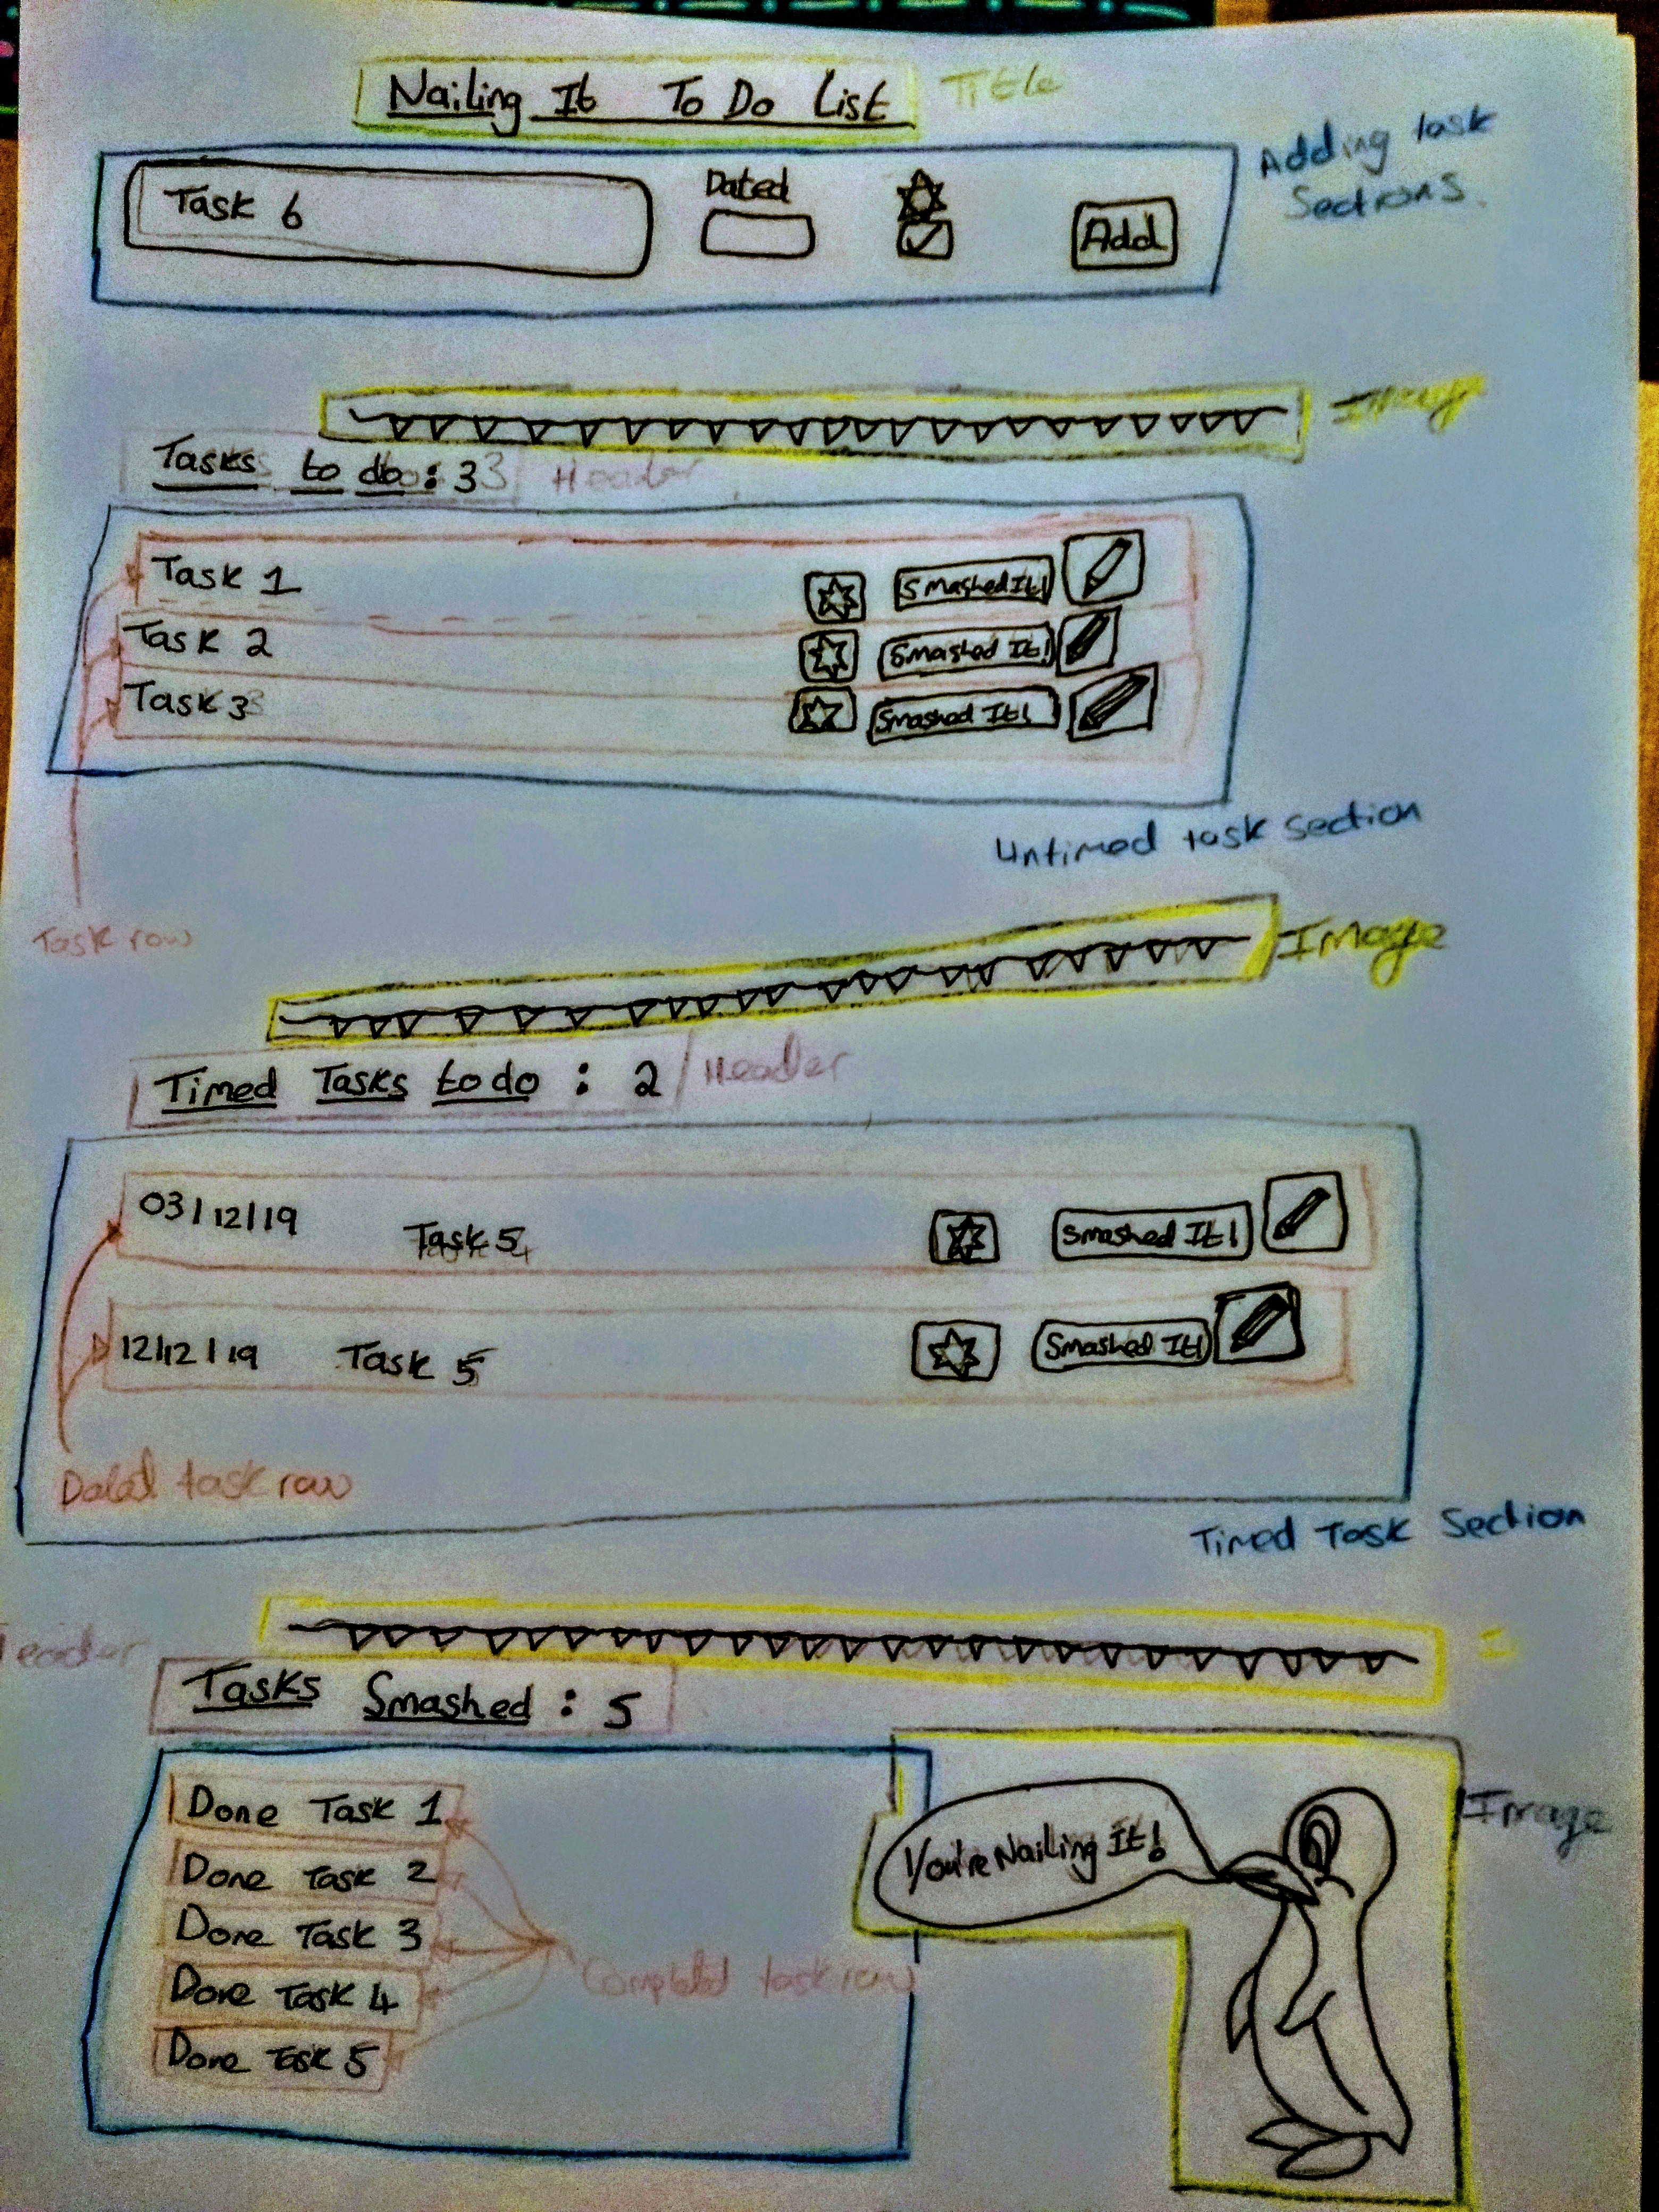 Nailing It To Do List
Title
Adding task
Sections.
Task 6
Dated
Add
Image
Tasks to do: 3
Header
Task 1
Smashed It!
Task 2
Smashed It!
Task 3
Smashed It!
Untimed task section
Task row
Image
Timed Tasks to do : 2
Header
03/12/19 Task 5 Smashed It!
12/12/19 Task 5 Smashed It!
Dated task row
Timed Task Section
Header
Tasks Smashed : 5
Done Task 1
Done Task 2
Done Task 3
Done Task 4
Done Task 5
Completed task row
You're Nailing It!
Image